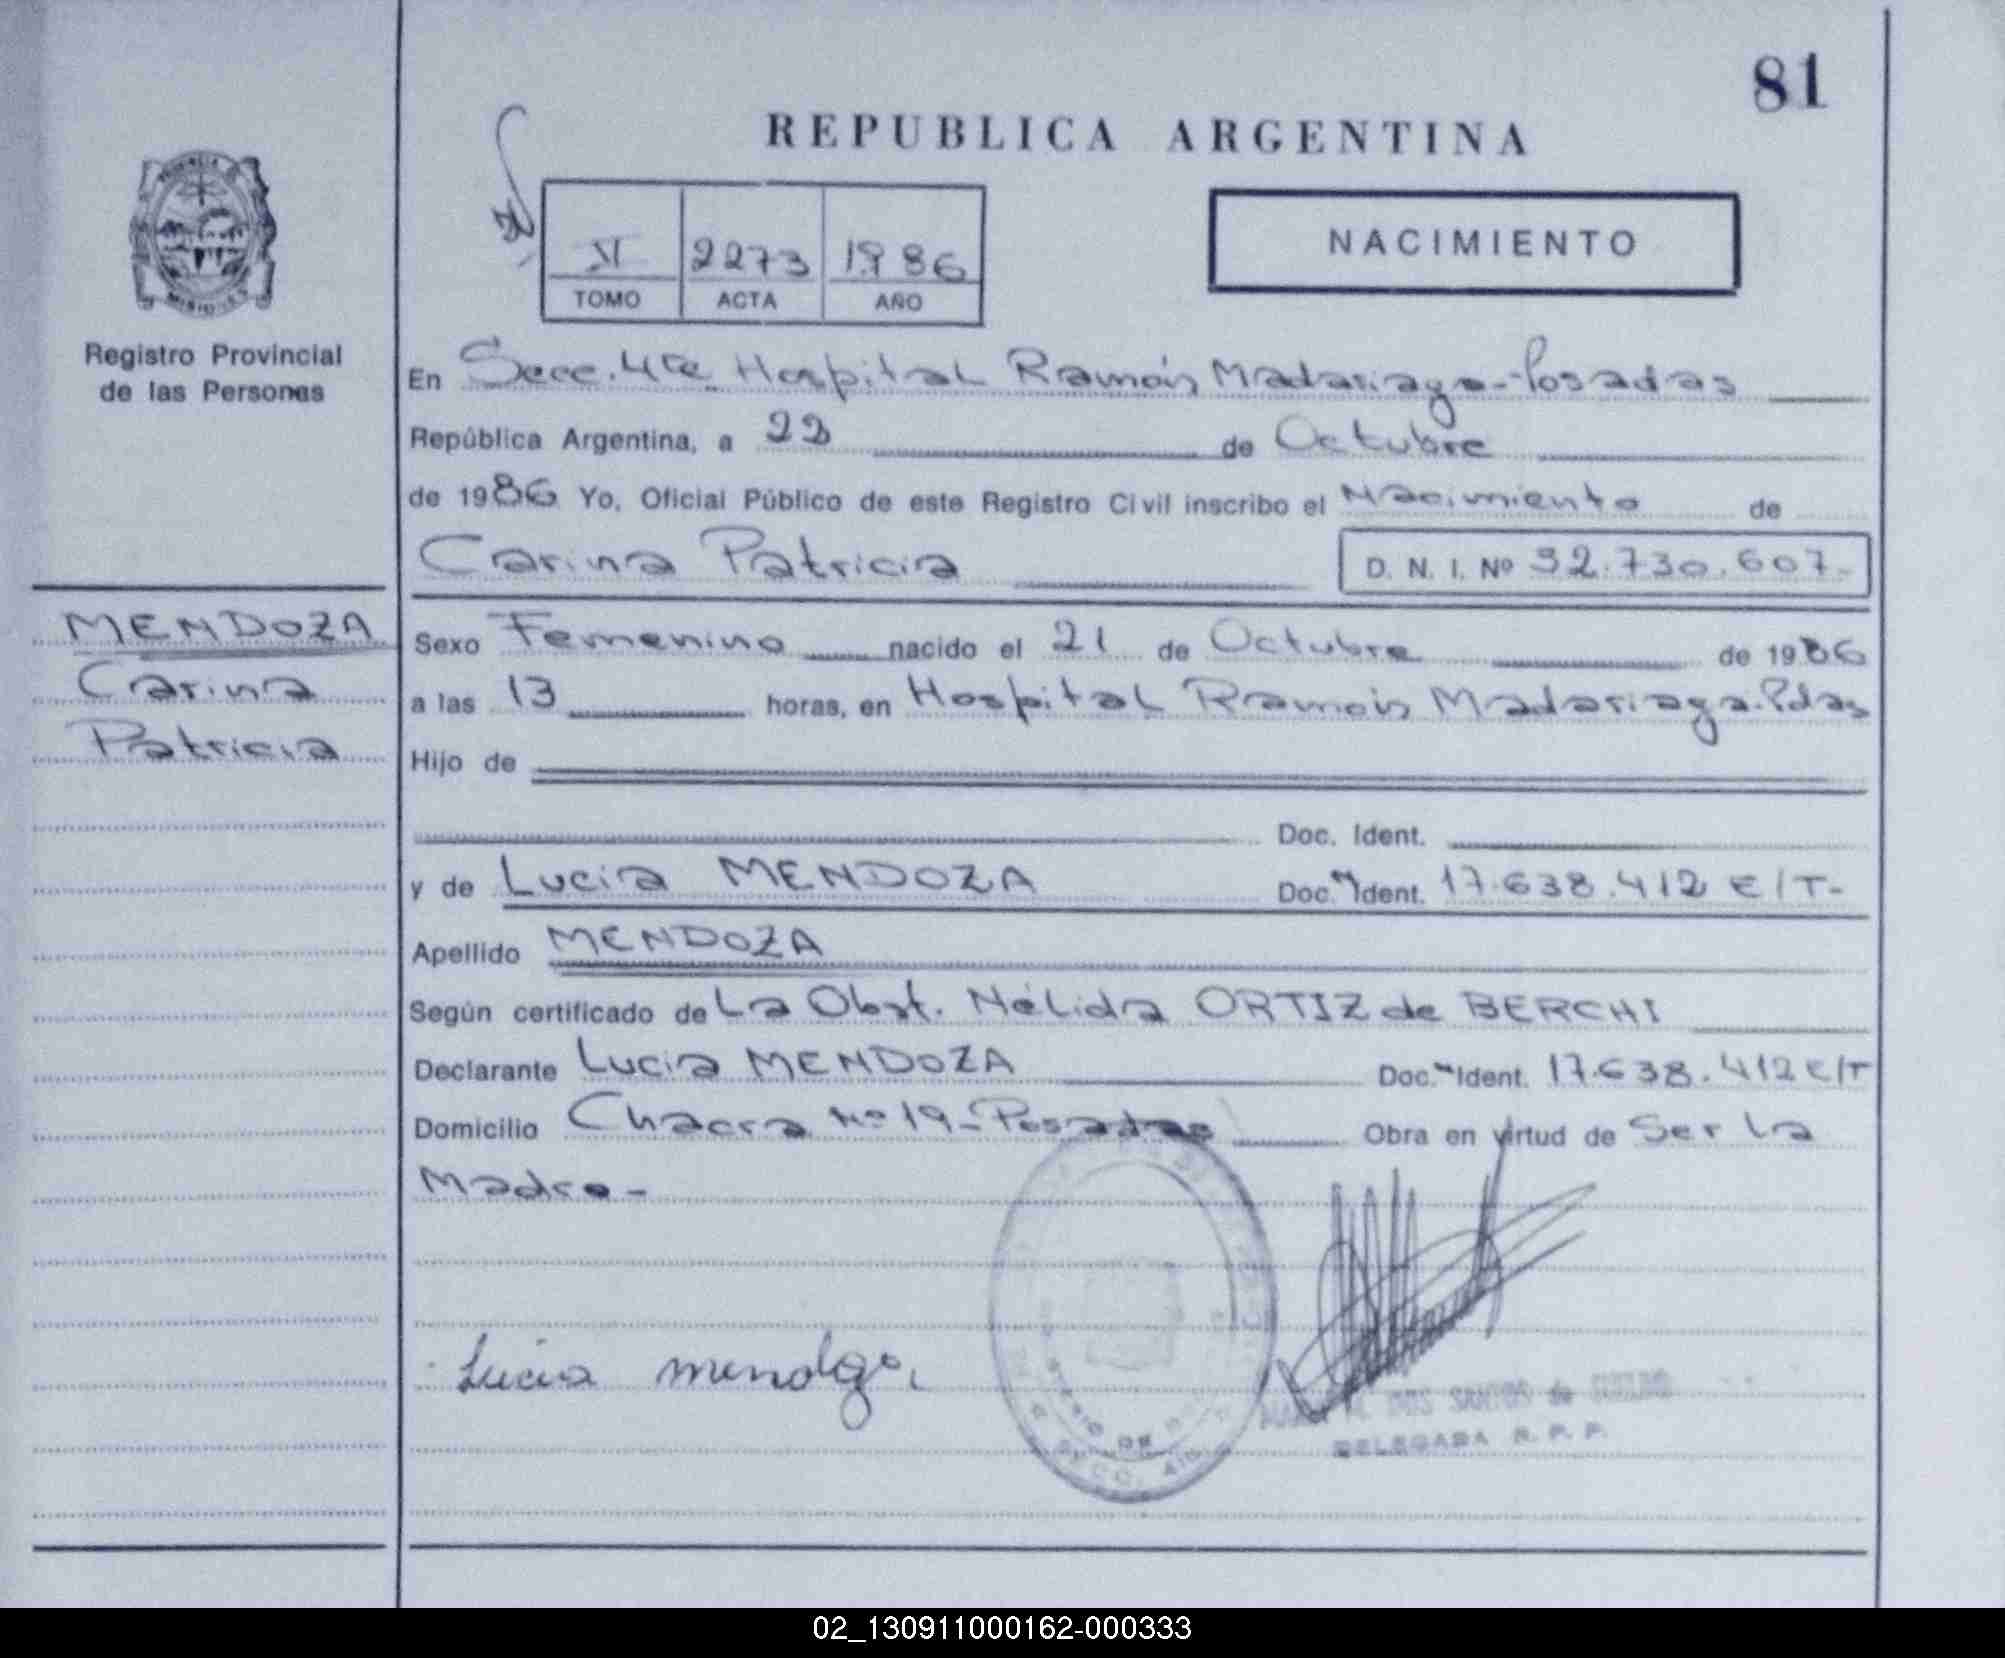 81
REPUBLICA ARGENTINA
2273 1986
TOMO ACTA AÑO
NACIMIENTO
MISIONES
Registro Provincial
de las Personas
MENDOZA
Carina
Patricia
En Secc. 4ta. Hospital Ramón Madariaga-Posadas
República Argentina, a 22 de Octubre
de 1986 Yo, Oficial Público de este Registro Civil inscribo el Nacimiento de
Carina Patricia D. N. I. Nº 32.730.607-
Sexo Femenino nacido el 21 de Octubre de 1986
a las 13 horas, en Hospital Ramón Madariaga-Pdas
Hijo de
Doc. Ident.
y de Lucia MENDOZA Doc. Ident. 17.638.412 E/T-
Apellido MENDOZA
Según certificado de La Obst. Nélida ORTIZ de BERCHI
Declarante Lucia MENDOZA Doc. Ident. 17.638.412 E/T
Domicilio Chacra Nº 19-Posadas Obra en virtud de Ser la
Madre-
Lucia mendoza
DOS SANTOS de
DELEGADA R. P. P.
02_130911000162-000333